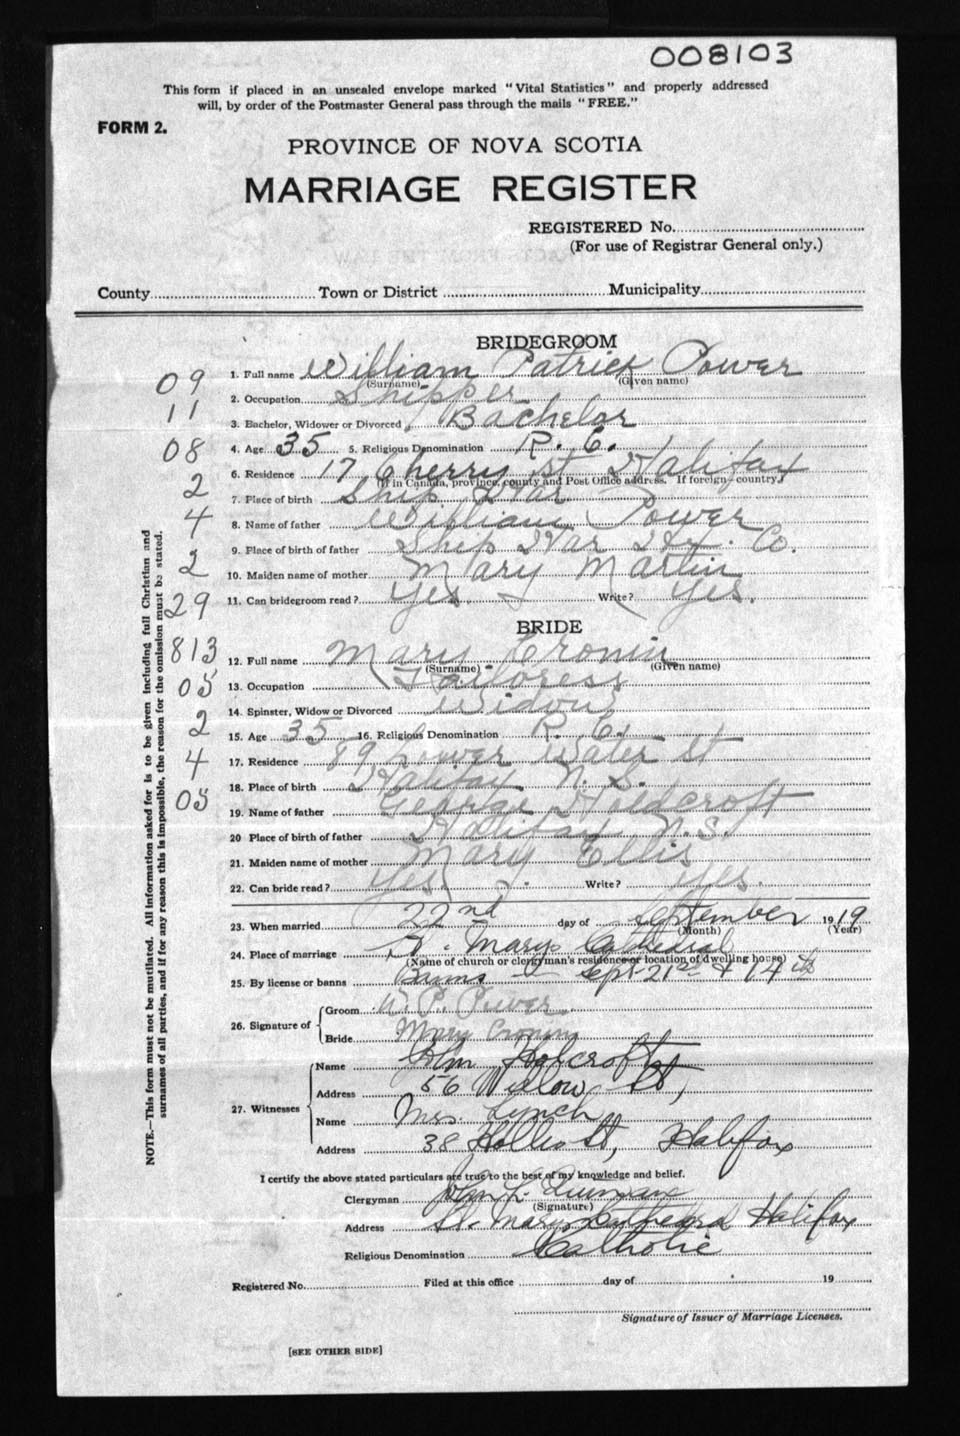 008103
This form if placed in an unsealed envelope marked "Vital Statistics" and properly addressed
will, by order of the Postmaster General pass through the mails "FREE."
FORM 2.
PROVINCE OF NOVA SCOTIA
MARRIAGE REGISTER
REGISTERED No.
(For use of Registrar General only.)
County Town or District Municipality
BRIDEGROOM
1. Full name William Patrick Power
(Surname) (Given name)
09
2. Occupation Shipper
11
3. Bachelor, Widower or Divorced Bachelor
08
4. Age 35 5. Religious Denomination R. C.
6. Residence 17 Cherry st Halifax
(If in Canada, province, county and Post Office address. If foreign—country)
2
7. Place of birth Ship Har
4
8. Name of father William Power
9. Place of birth of father Ship Har Hfx. Co.
2
10. Maiden name of mother Mary Martin
29
11. Can bridegroom read? Yes. Write? Yes.
BRIDE
813
12. Full name Mary Cronin
(Surname) (Given name)
05
13. Occupation Tailoress
14. Spinster, Widow or Divorced Widow
2
15. Age 35 16. Religious Denomination R. C.
4
17. Residence 89 Lower Water St
18. Place of birth Halifax N. S.
05
19. Name of father George Holdcroft
20 Place of birth of father Halifax N.S.
21. Maiden name of mother Mary Ellis
22. Can bride read? Yes Write? Yes.
23. When married 22nd day of September 1919
(Month) (Year)
24. Place of marriage St. Marys Cathedral
(Name of church or clergyman's residence or location of dwelling house)
25. By license or banns Banns — Sept. 21st & 14th
26. Signature of Groom W. P. Power
Bride Mary Cronin
27. Witnesses Name John Holcroft
Address 56 Willow St,
Name Mrs. Lynch
Address 38 Hollis St, Halifax
I certify the above stated particulars are true to the best of my knowledge and belief.
Clergyman
(Signature)
Address St. Marys Cathedral Halifax
Religious Denomination Catholic
Registered No. Filed at this office day of 19
Signature of Issuer of Marriage Licenses.
[SEE OTHER SIDE]
NOTE.—This form must not be mutilated. All information asked for is to be given including full Christian and
surnames of all parties, and if for any reason this is impossible, the reason for the omission must be stated.